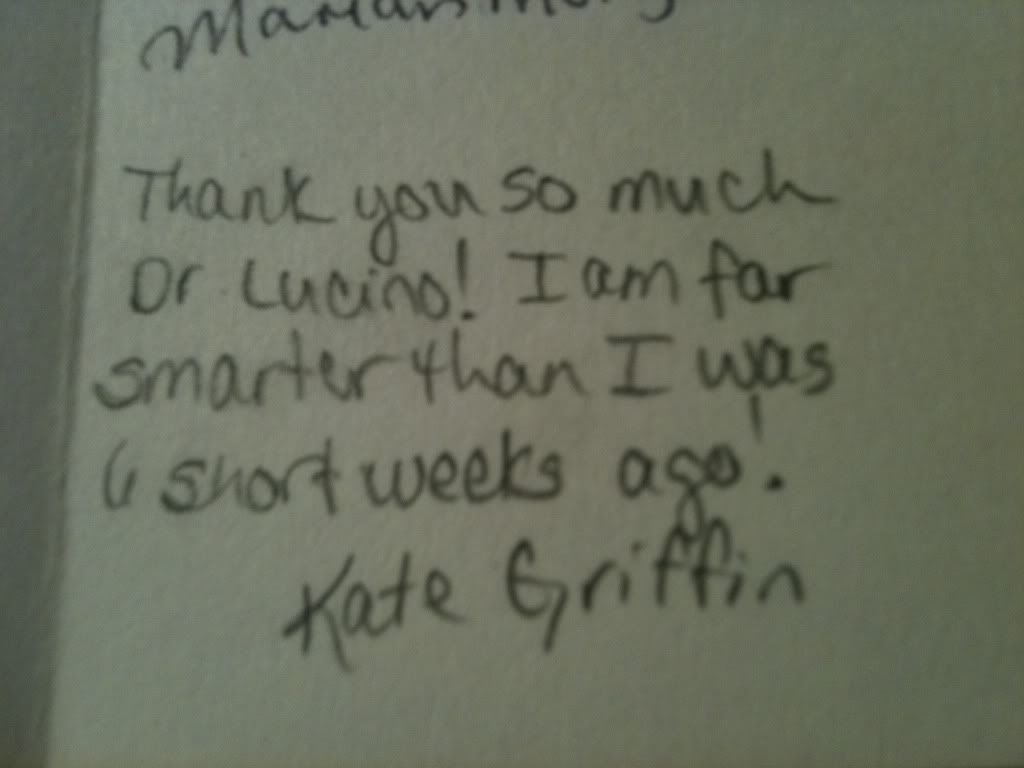 Thank you so much
Dr Lucino! I am far
smarter than I was
6 short weeks ago!
Kate Griffin